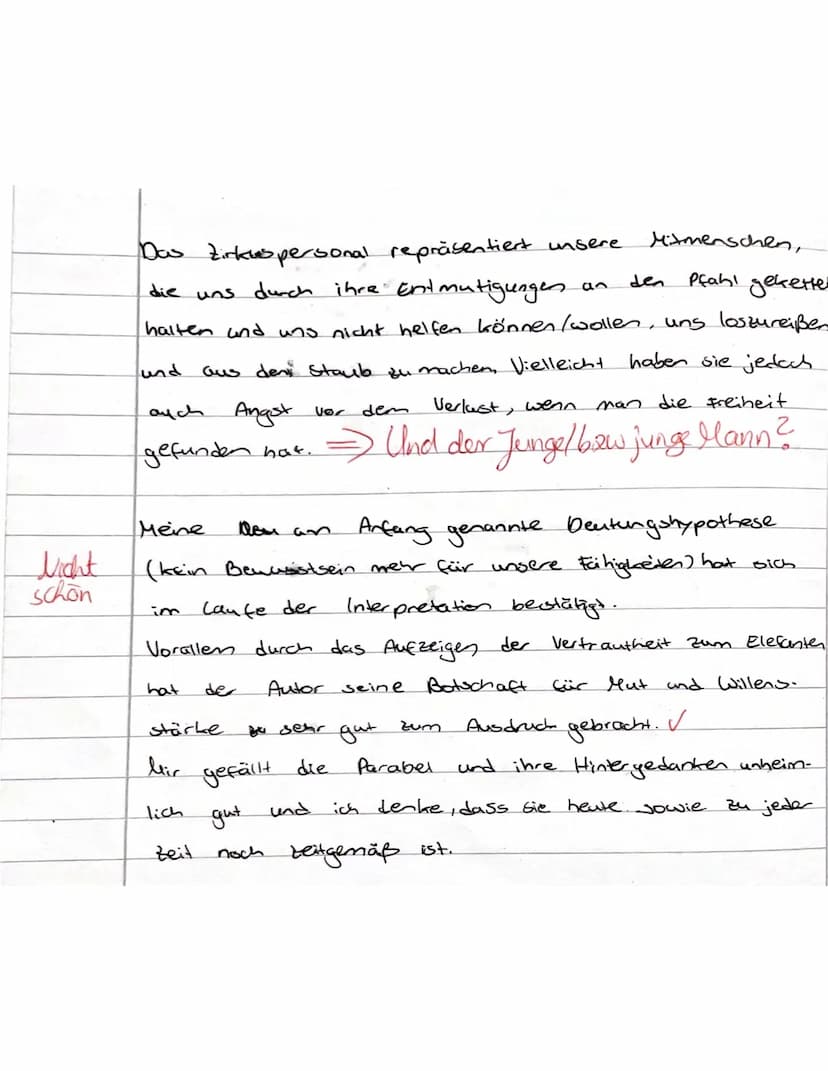 Das Zirkuspersonal repräsentiert unsere Mitmenschen,
die uns durch ihre Entmutigungen an den Pfahl gekettet
halten und uns nicht helfen können/wollen, uns loszureißen
und aus dem Staub zu machen. Vielleicht haben sie jedoch
auch Angst vor dem Verlust, wenn man die Freiheit
gefunden hat. => Und der Junge/bzw junge Mann?
Meine am Anfang genannte Deutungshypothese
Nicht schön
(kein Bewusstsein mehr für unsere Fähigkeiten) hat sich
im Laufe der Interpretation bestätigt.
Vorallem durch das Aufzeigen der Vertrautheit zum Elefanten
hat der Autor seine Botschaft für Mut und Willens-
stärke sehr gut zum Ausdruck gebracht. ✓
Mir gefällt die Parabel und ihre Hintergedanken unheim-
lich gut und ich denke, dass sie heute sowie zu jeder
Zeit noch zeitgemäß ist.